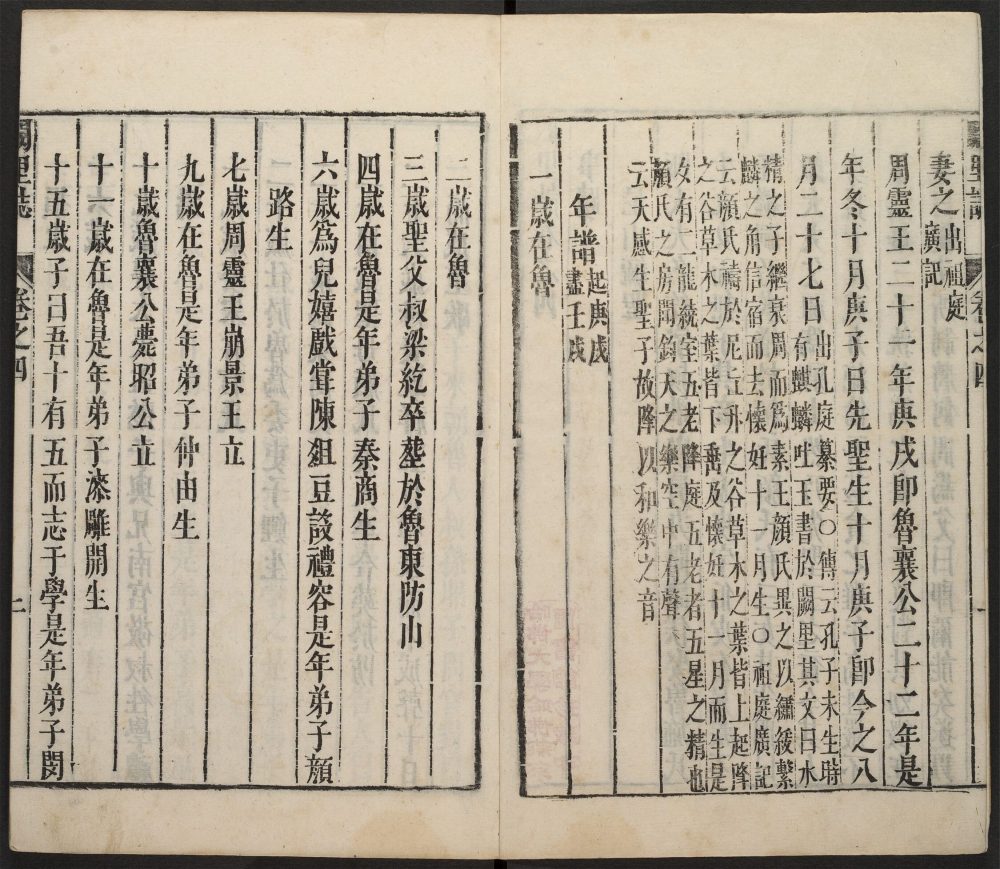 妻之出祖庭廣記
周靈王二十一年庚戌卽魯襄公二十二年是
年冬十月庚子日先聖生十月庚子卽今之八
月二十七日出孔庭纂要○傳云孔子未生時
有麒麟吐玉書於闕里其文曰水
精之子繼衰周而爲素王顏氏異之以繡紱繫
麟之角信宿而去懷妊十一月生○祖庭廣記
云顏氏禱於尼丘升之谷草木之葉皆上起降
之谷草木之葉皆下垂及懷妊十一月而生是
夕有二龍繞室五老降庭五老者五星之精也
顏氏之房聞鈞天之樂空中有聲
云天感生聖子故降以和樂之音
年譜起庚戌盡壬戌
一歲在魯
二歲在魯
三歲聖父叔梁紇卒塟於魯東防山
四歲在魯是年弟子秦商生
六歲爲兒嬉戲嘗陳俎豆設禮容是年弟子顏
路生
七歲周靈王崩景王立
九歲在魯是年弟子仲由生
十歲魯襄公薨昭公立
十一歲在魯是年弟子漆雕開生
十五歲子曰吾十有五而志于學是年弟子閔
闕里誌
卷之四